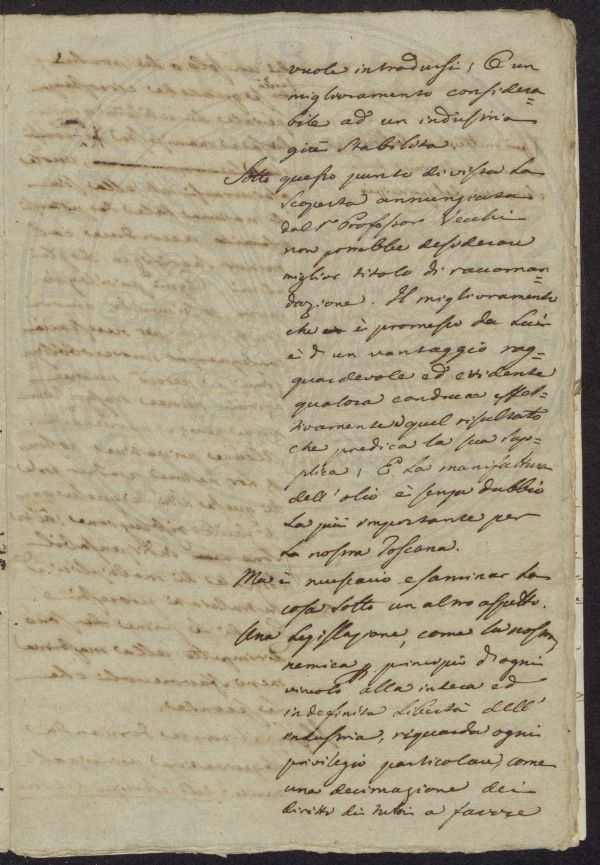 vuole introdursi; O un
miglioramento considera=
bile ad un industria
già stabilita.
Sotto questo punto di vista La
Scoperta annunziata
dal Sr. Professor Vecchi
non potrebbe desiderare
miglior titolo di raccoman=
dazione. Il miglioramento
che è promesso da Lui
è d'un vantaggio rag=
guardevole ed evidente
qualora conduca effet=
tivamente a quel risultato
che predica la sua sup=
plica; E La manifattura
dell'olio è senza dubbio
La più importante per
La nostra Toscana.
Ma è necessario esaminar La
cosa sotto un altro aspetto.
Una Legislazione, come la nostra,
nemica per principio di ogni
vincolo alla intera ed
indefinita Libertà dell'
industria, riguarda ogni
privilegio particolare, come
una decimazione dei
diritti di tutti a favore